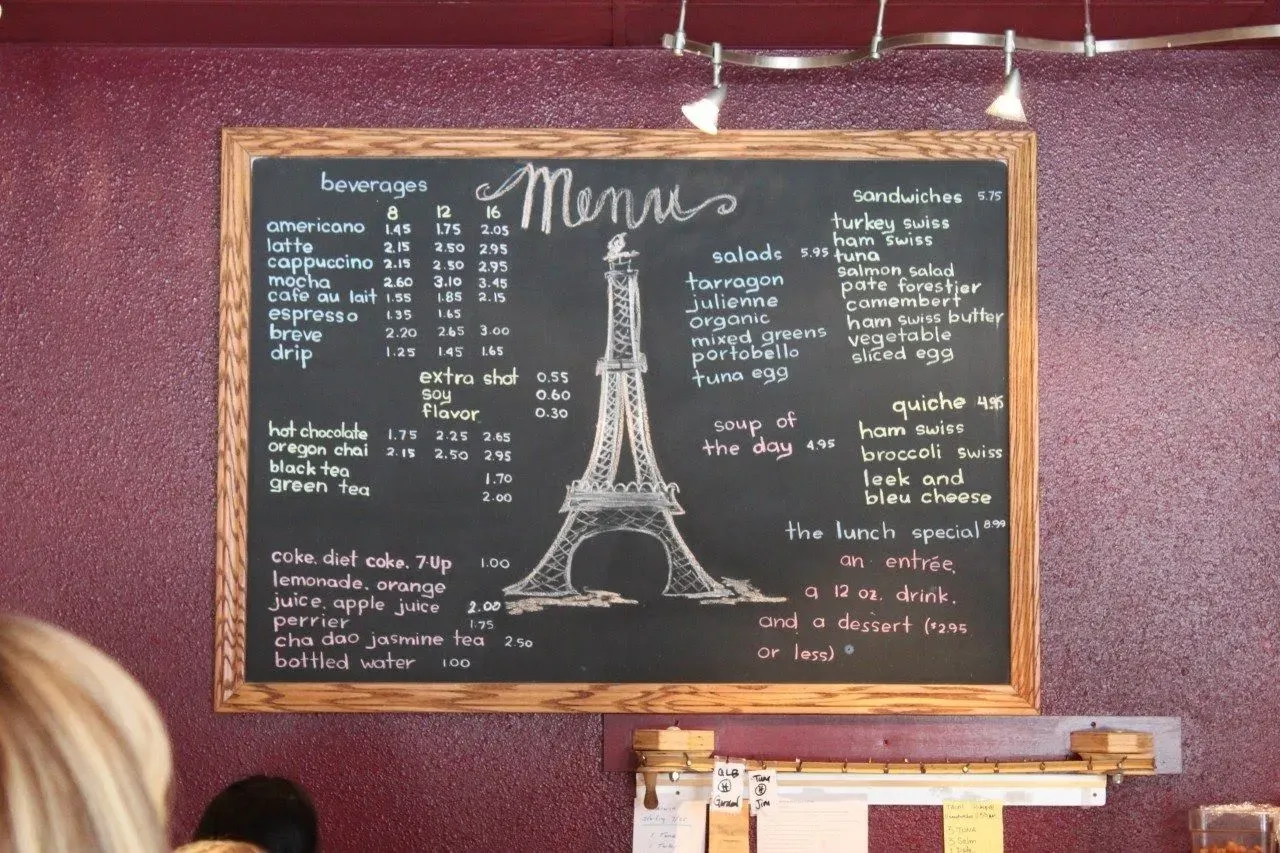 Menu
beverages
8 12 16
americano 1.45 1.75 2.05
latte 2.15 2.50 2.95
cappuccino 2.15 2.50 2.95
mocha 2.60 3.10 3.45
cafe au lait 1.55 1.85 2.15
espresso 1.35 1.65
breve 2.20 2.65 3.00
drip 1.25 1.45 1.65
extra shot 0.55
soy 0.60
flavor 0.30
hot chocolate 1.75 2.25 2.65
oregon chai 2.15 2.50 2.95
black tea 1.70
green tea 2.00
coke. diet coke. 7-Up 1.00
lemonade. orange
juice. apple juice 2.00
perrier 1.75
cha dao jasmine tea 2.50
bottled water 1.00
salads 5.95
tarragon
julienne
organic
mixed greens
portobello
tuna egg
soup of
the day 4.95
sandwiches 5.75
turkey swiss
ham swiss
tuna
salmon salad
pate forestier
camembert
ham swiss butter
vegetable
sliced egg
quiche 4.95
ham swiss
broccoli swiss
leek and
bleu cheese
the lunch special 8.99
an entrée,
a 12 oz. drink.
and a dessert ($2.95
or less)
Jim
TUNA